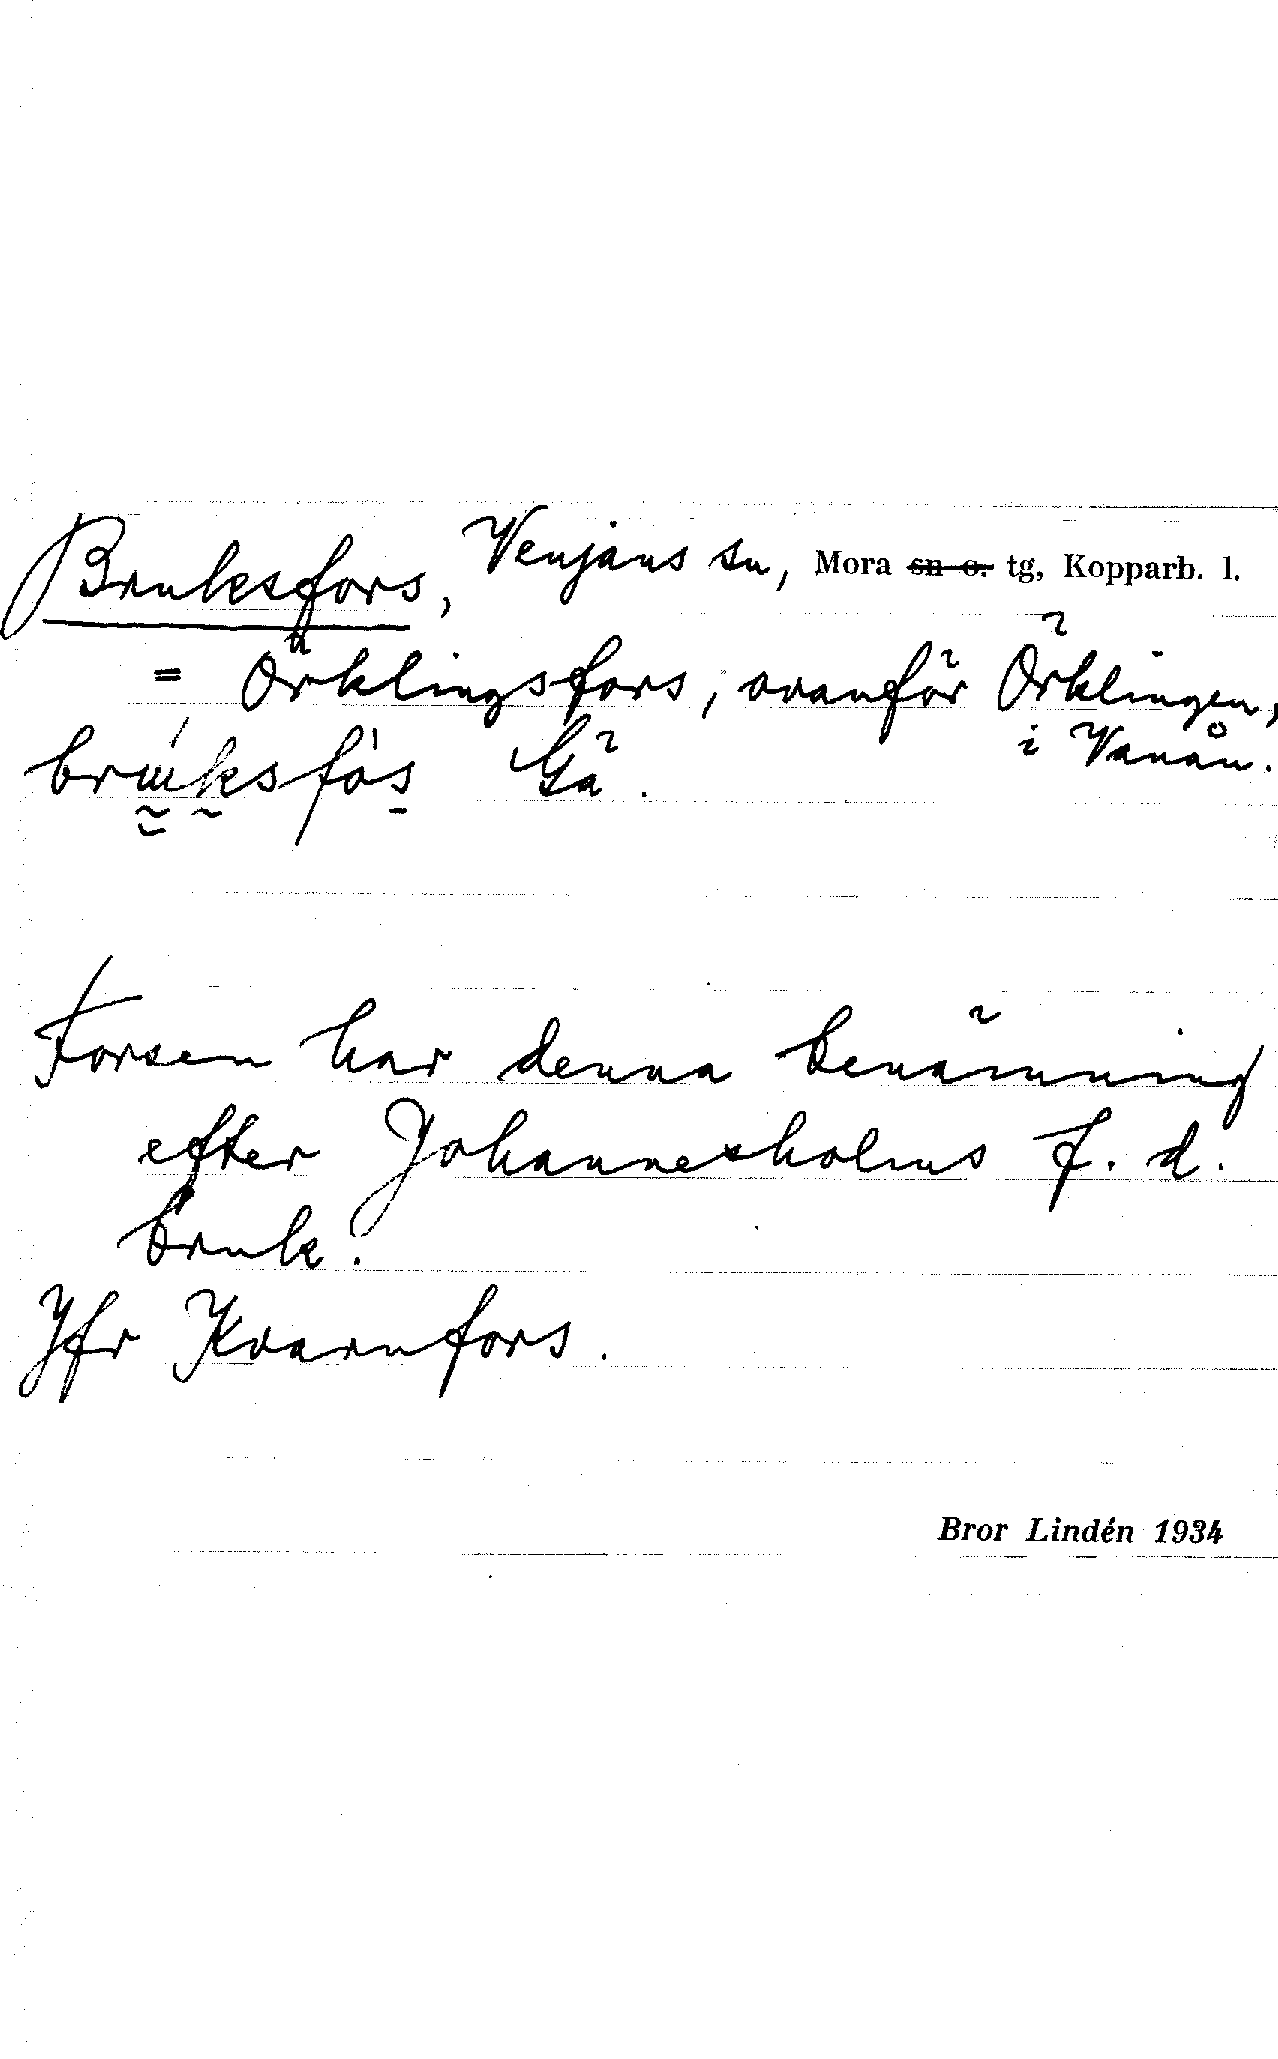 Bruksfors, Venjans sn, Mora sn o. tg, Kopparb. l.
= Örklingsfors, ovanför Örklingen,
i Vanån.
Gä.
Forsen har denna benämning
efter Johannesholms f. d.
bruk.
Jfr Kvarnfors.
Bror Lindén 1934